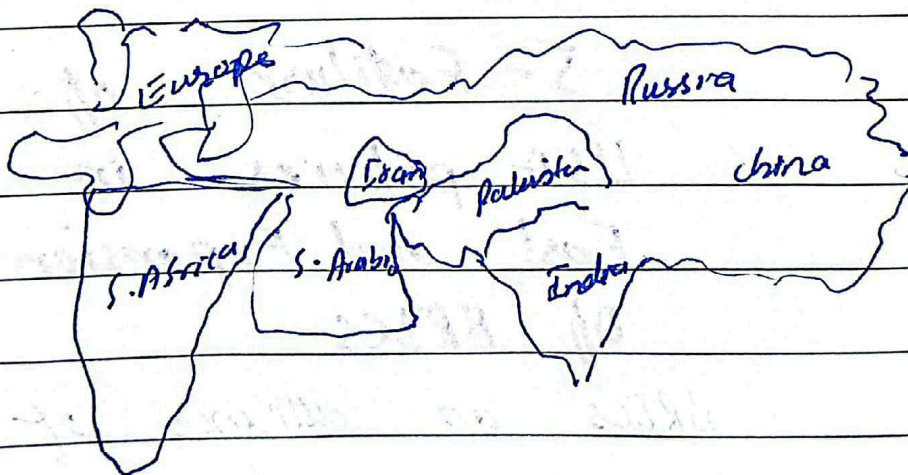 Europe
Russia
Iran
Pakistan
China
S. Africa
S. Arabia
India